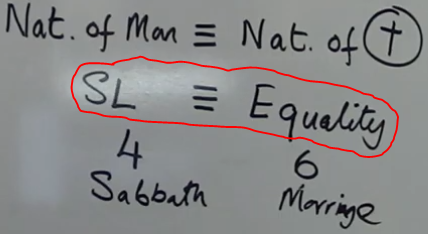 Nat. of Man ≡ Nat. of ✝
SL ≡ Equality
4 6
Sabbath Marriage